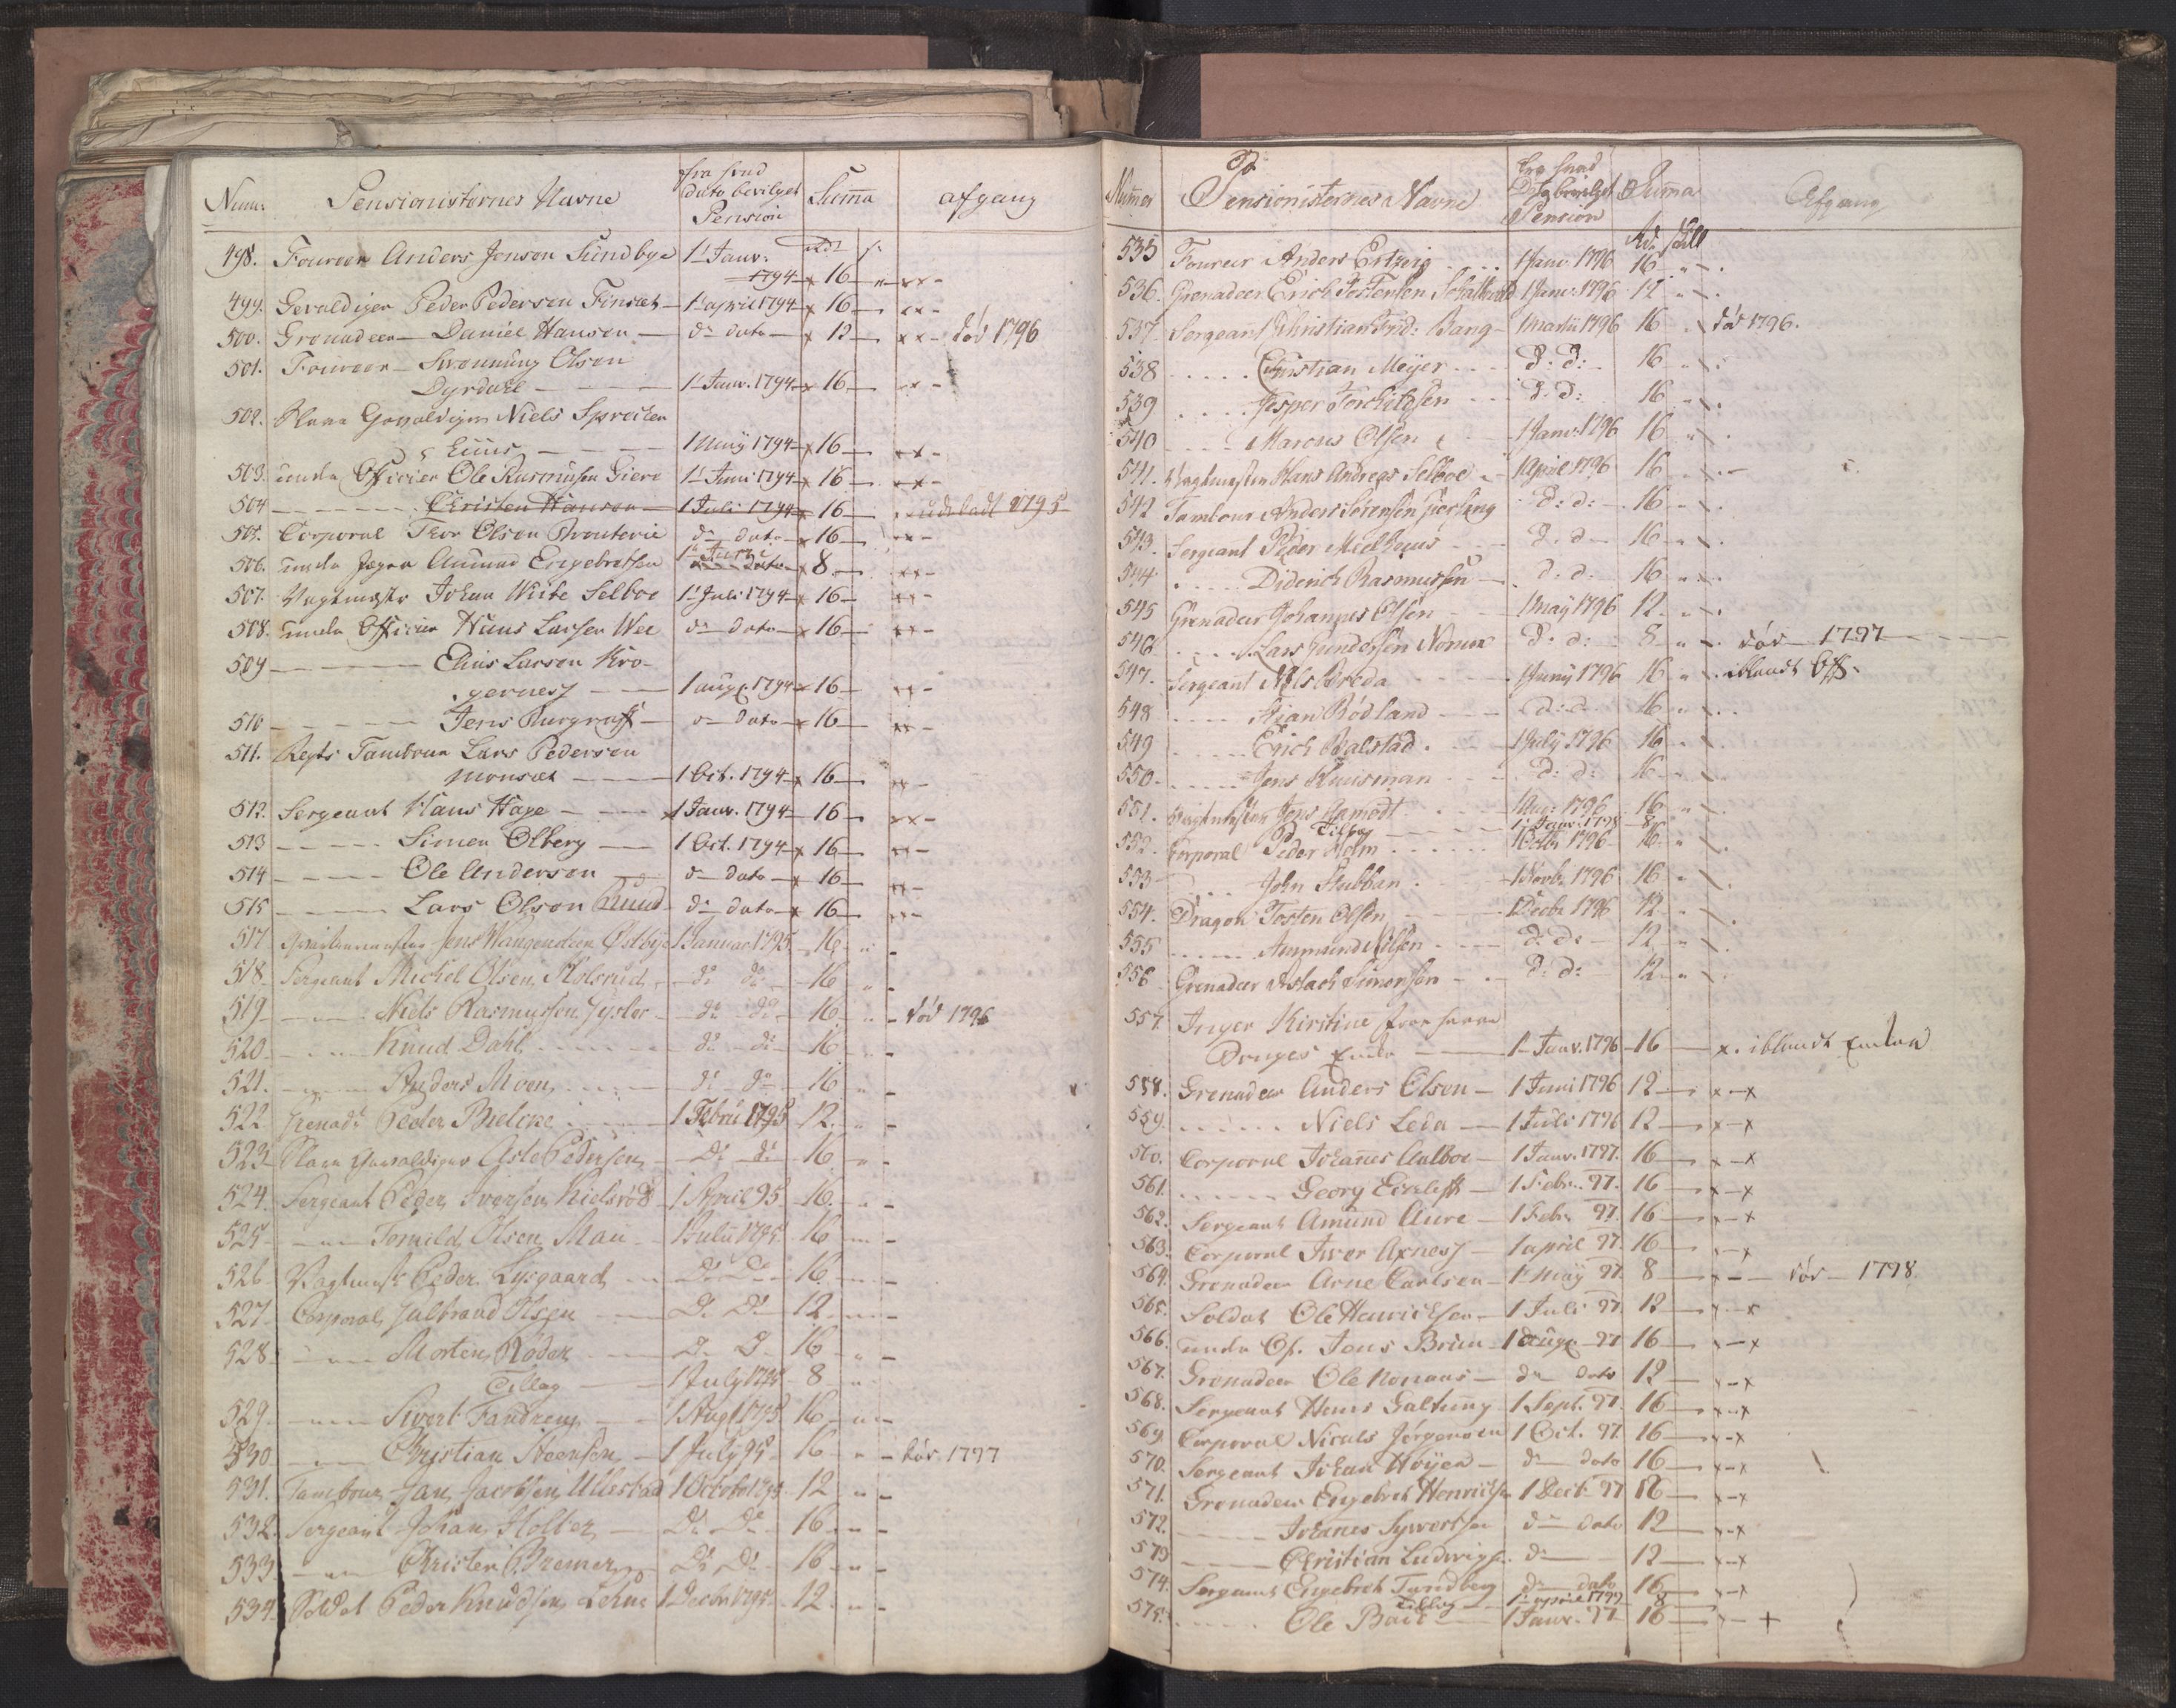 Num: Pensionisternes Navne fra hvad dato bevilget Pension Summa afgang
Rd s
498. Foureer Anders Jensen Sundbye 1 Janv:
1794 x 16
499. Gevaldiger Peder Pedersen Finset 1 april 1794 x 16
500. Grenadeer Daniel Hansen do dato x 12 død 1796
501. Foureer Svenning Olsen
Dyrdahl 1 Janv. 1794 x 16
502. Gevaldiger Niels
1 May 1794 x 16
503. under Officier Ole Rasmusen Giere 1 Juni 1794 x 16
504 Christen Hansen 1 Juli 1794 x 16 udeladt 1795
505. Corporal Thor Olsen do dato x 16
506. Jæger Amund Engebretsen 1 Juni x 8
507. Vagtmestr Johan Selboe 1 Juli 1794 x 16
508. under Officier Hans Larsen Wee do dato x 16
509 Elius Larsen Kro-
gernes 1 aug. 1794 x 16
510 Jens Burgraff do dato x 16
511. Regts Tambour Lars Pedersen
Monset 1 Oct. 1794 x 16
512. Sergeant Hans Hage 1 Janv. 1794 16
513 Simen Olberg 1 Oct. 1794 x 16
514 Ole Andersen do dato x 16
515 Lars Olsen Ruud do dato x 16
517 Jens Wangensteen Østbye 1 Januar 1795 16
518. Sergeant Michel Olsen Kolsrud do do 16
519 Niels Rasmussen Jysler do do 16 død 1796
520 Knud Dahl do do 16
521. Anders Moen do do 16
522 Grenadr Peder Bielcke 1 Febru 1795 12
523 Gevaldiger Asle Pedersen Do do 16
524. Sergeant Peder Iversen Kielsrød 1 April 95 16
525 Tomild Olsen Mau 1 Juli 1795 16
526 Vagtmestr Peder Lysgaard Do Do 16
527 Corporal Halvord Olsen Do Do 12
528 Morten Røder Do Do 16
Tillæg 1 July 1795 8
529. Sivert Tandreng 1 Augt 1795 16
530 Christian Steensen 1 July 95 16 død 1797
531. Tambour Jan Jacobsen Ullestad 1 October 1795 12
532. Sergeant Johan Holter Do Do 16
533 Christen Bremer Do Do 16
534. Soldat Peder Knudsen Lehne 1 Decbr 1795 12
Numer Pensionisternes Navne fra hvad Dato bevilget Pension Summa Afgang
Rd. skill
535 Foureer Anders Ertzeig 1 Janv 1796 16
536. Grenadeer Erich Tostensen 1 Janv: 1796 12
537. Sergeant Christian Frid: Bang 1 Martii 1796 16 død 1796.
538 Christian Meyer D: D: 16
539 Jesper Torchildsen D: D: 16
540 Marcus Olsen 1 Janv: 1796 16
541. Vagtmester Hans Andreas Selboe 1 April 1796 16
542 Tambour Anders Sørensen D: d: 16
543. Sergeant Peder Mielhuus D: d: 16
544 Diderich Rasmussen d: d: 16
545 Grenadeer Johannes Olsen 1 May 1796 12
546. Lars Gundersen D: d: 8 død 1797
547. Sergeant Nils Breda 1 Juny 1796 16 iblandt Off.
548 Rødland D: d: 16
549 Erich Balstad 1 July 1796 16
550 Jens Knusman D: d: 16
551. Vagtmester Jens Aamodt 1 Aug: 1796 16
Tillæg 1 Janv. 1798 8
552. Corporal Peder Holm 1 Octb 1796 16
553 John Stubban 1 Novb: 1796 16
554. Dragon Tosten Olsen 1 Decbr 1796 12
555 Ammund Nilsen D: d: 12
556 Grenadeer Aslach Simonsen D: d: 12
557. Inger Kirstine
Druges Enke 1 Janv. 1796 16 x. iblandt Enken
558. Grenadeer Anders Olsen 1 Juni 1796 12 x-x
559. Niels Leda 1 Juli 1796 12 x-x
560. Corporal Johannes Aalboe 1 Janv. 1797. 16 x-x
561. Georg 1 Febr. 97. 16 x-x
562. Sergeant Amund Aure 1 Febr 97. 16 x-x
563. Corporal Iver Axnes 1 april 97. 16 x-x
564. Grenadeer Arne Carlsen 1 May 97. 8 x-- død 1798.
565. Soldat Ole Henrichsen 1 Juli 97. 12 x-x
566. under Of. Jens Brun 1 aug. 97 16 x-x
567. Grenadeer Ole Monsens do dato 12 x-x
568. Sergeant Hans Galtung 1 Sept. 97. 16 x-x
569. Corporal Nicols Jørgensen 1 Oct. 97. 16 x-x
570. Sergeant Johan Høyer do dato 16 x-x
571. Grenadeer Engebret Henrichs 1 Decb. 97 16 x-x
572. Johannes Syvertsen do dato 12 x-x
573 Christian Ludvigs. do 12 x-x
574. Sergeant Engebret Tundberg do dato 16 x-x
Tillæg 1 april 1799 8
575. Ole 1 Janv. 97 16 x-+